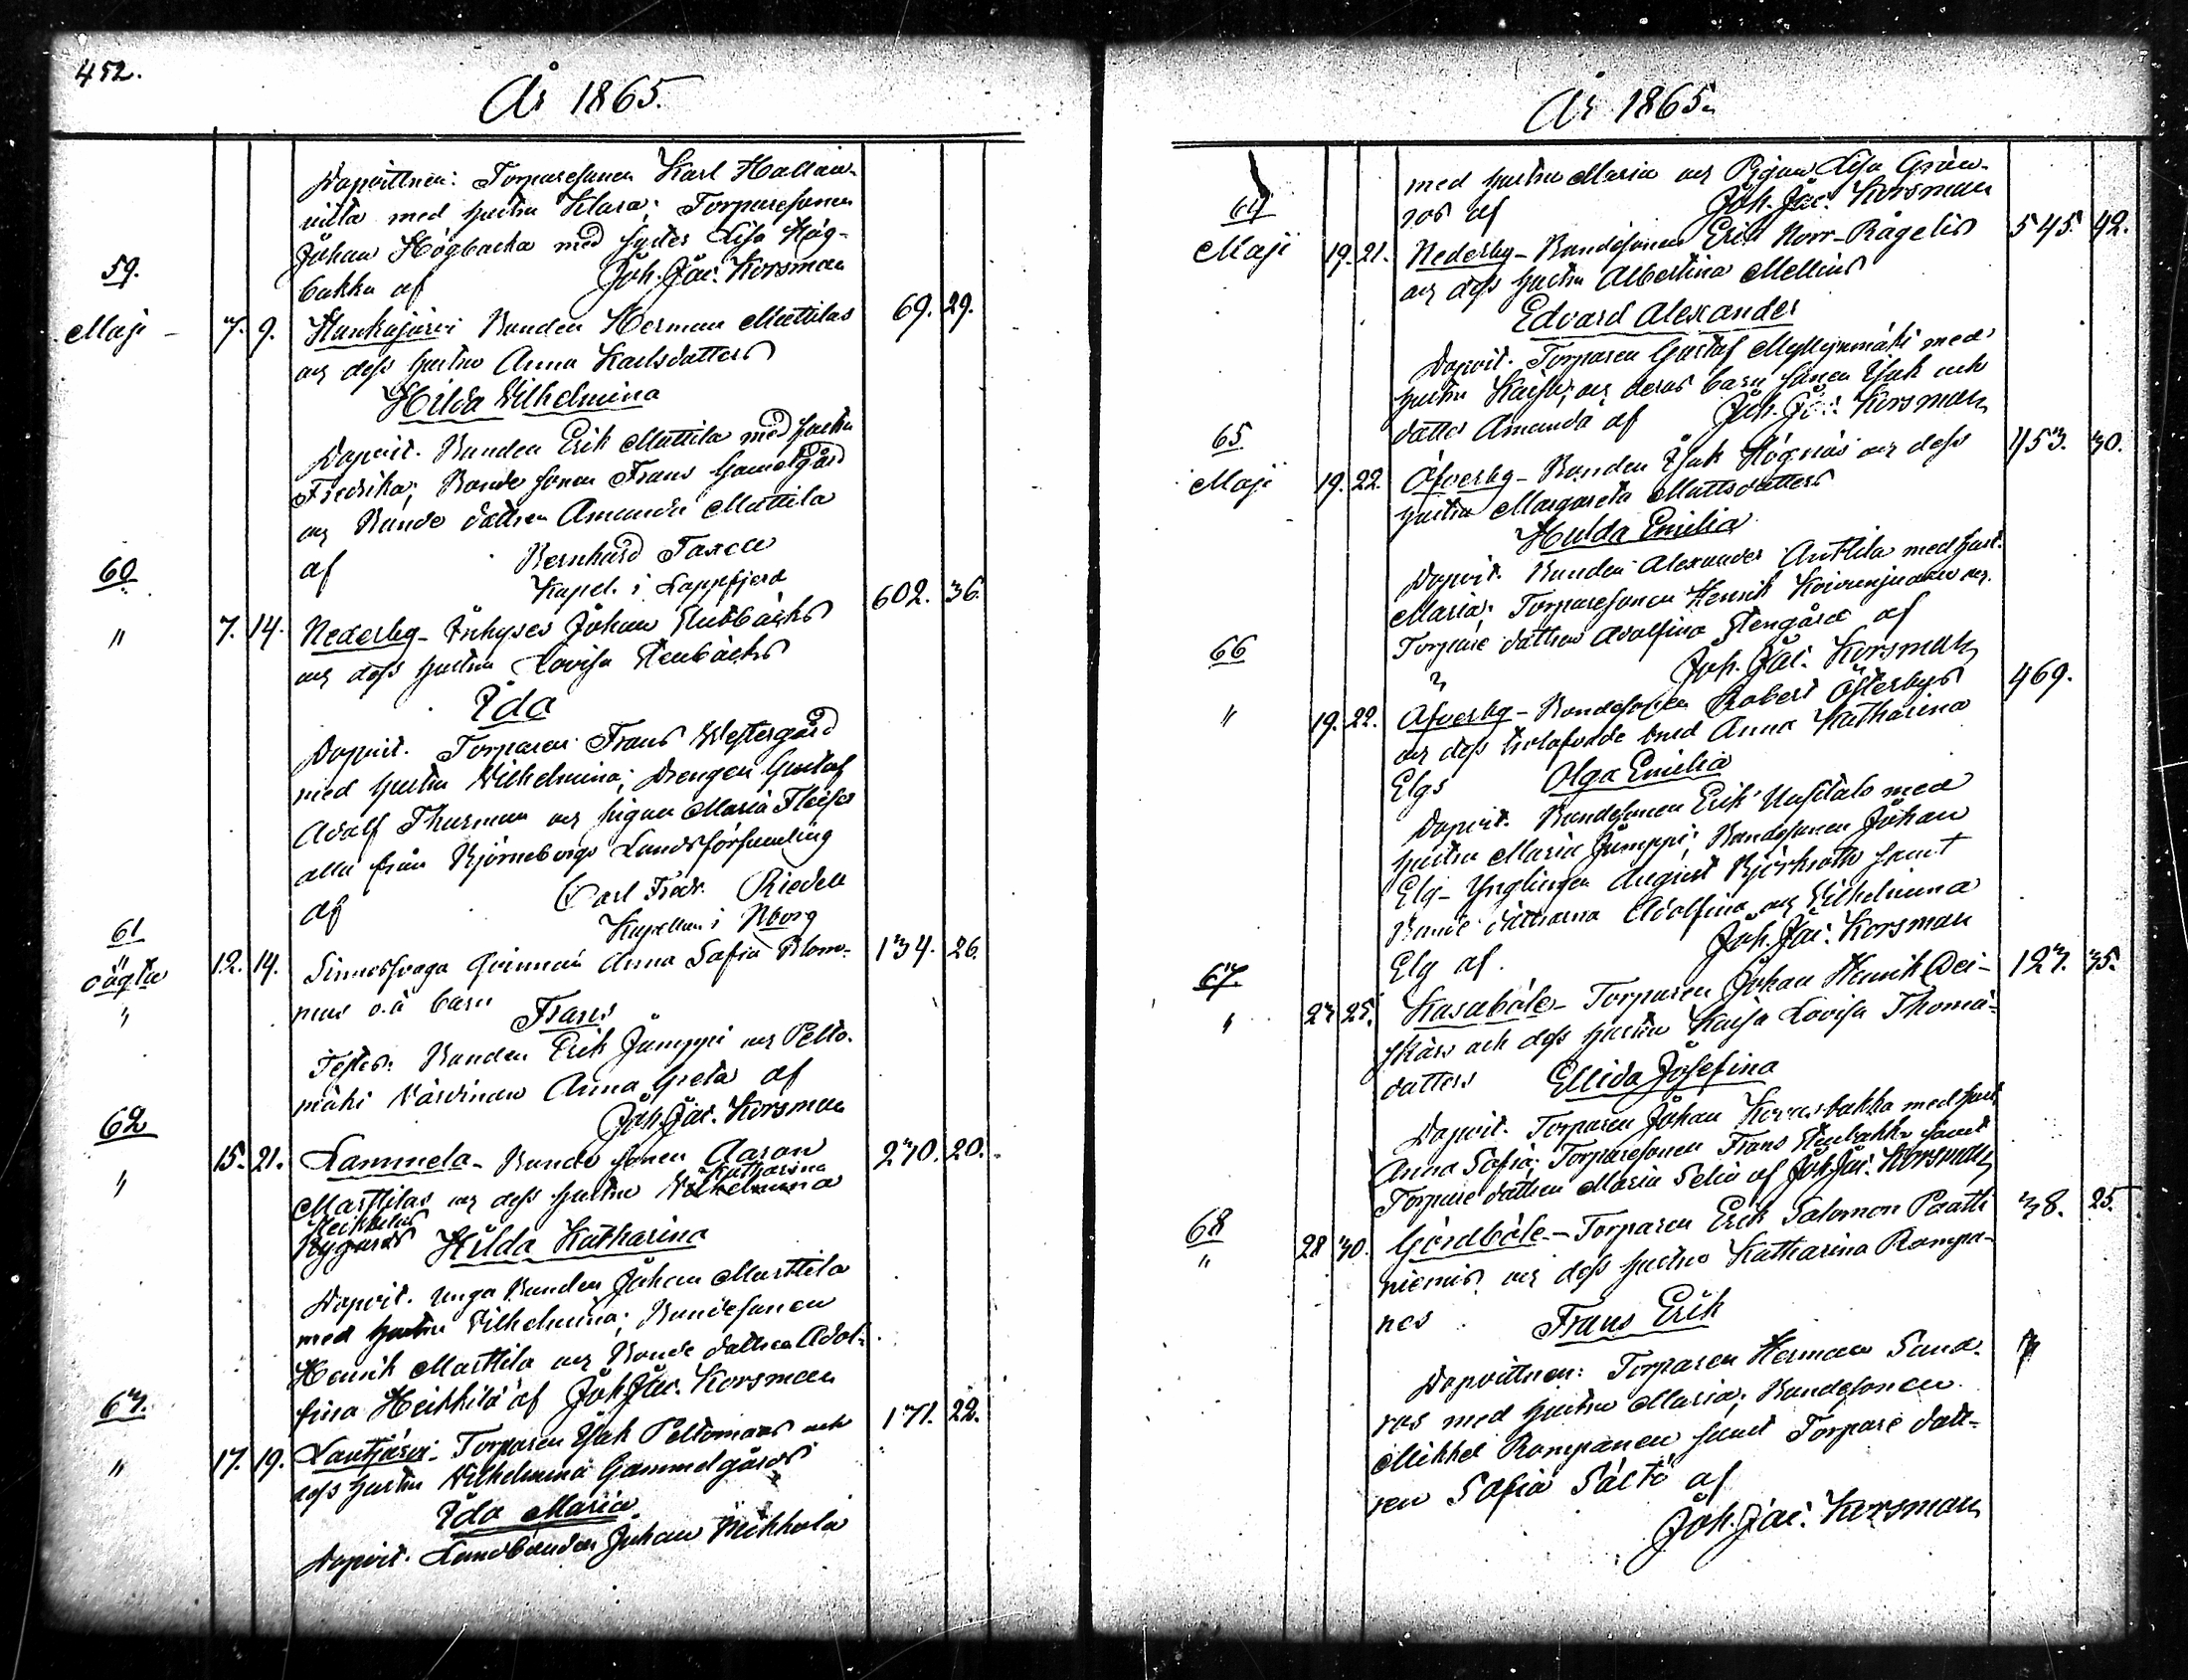 452.
År 1865.
Dopvittnen: Torparesonen Karl Hallan-
vitta med hustru Klara; Torparesonen
Johan Högbacka med syster Lisa Hög-
59.
backa af Joh. Jac. Korsman
Maji - 7. 9. Hankajärvi Bonden Herman Mattilas 69. 29.
och dess hustru Anna Karlsdotters
Hilda Wilhelmina
Dopvit. Bonden Erik Mattila med hustru
Fredrika; Bonde sonen Frans Gamelgård
och Bonde dottren Amanda Mattila
af Bernhard Taxell
60.
Kapel. i Lappfjerd
" 7. 14. Nederby - Inhyses Johan Stubbacks 602. 36.
och dess hustru Lovisa Stenbäcks
Ida
Dopvit. Torparen Frans Westergård
med hustru Wilhelmina; Drengen Gustaf
Adolf Thurman och pigan Maria
alla från Björneborgs Landsförsamling
af Carl Fredr. Riedell
Kapellan i Nborg
61
oägta 12. 14. Sinnessvaga Qvinnan Anna Sofia Blom- 134. 26.
mus o.ä barn Frans
Testes: Bonden Erik Jämppi och Pelto-
mäki Värdinan Anna Greta af
Joh. Jac. Korsman
62
" 15. 21. Lammela - Bonde sonen Aaron 230. 20.
Katharina
Marttilas och dess hustru Wilhelmina
Heikkilas
Nygårds Hilda Katharina
Dopvit. unga Bonden Johan Marttila
med hustru Wilhelmina; Bondesonen
Henrik Marttila och Bonde dottren Adol-
fina Heikkilä af Joh. Jac. Korsman
63.
" 17. 19. Lautjärvi - Torparen Isak Peltomaas och 171. 22.
dess hustru Wilhelmina Gammelgårds
Ida Maria
Dopvit. Landbonden Johan Mikkola
År 1865.
med hustru Maria och Pigan Lisa Grän-
ros af Joh. Jac. Korsman
64
Maji 19. 21. Nederby - Bondesonen Erik Norr-Rågelis 545. 42.
och dess hustru Albertina Mellins
Edvard Alexander
Dopvit. Torparen Gustaf Myllymäki med
hustru Kaisa, och deras barn sonen Isak och
dotter Amanda af Joh. Jac. Korsman
65
Maji 19. 22. Öfverby - Bonden Isak Högnäs och dess 453. 30.
hustru Margareta Mattsdotters
Hulda Emilia
Dopvit. Bonden Alexander Anttila med hust.
Maria; Torparesonen Henrik Koivunjuuri och
Torpare dottren Adolfina Stengård af
66
Joh. Jac. Korsman
" 19. 22. Öfverby - Bondesonen Robert Österbys 469.
och dess trolofvade brud Anna Katharina
Elgs Olga Emilia
Dopvit. Bondesonen Erik Uusitalo med
hustru Maria Jämppi; Bondesonen Johan
Elg - Ynglingen August Björkroth samt
Bonde döttrarna Adolfina och Wilhelmina
Elg af. Joh. Jac. Korsman
67.
" 23 25. Kasaböle - Torparen Johan Henrik Dei- 123. 35.
skärs och dess hustru Kaisa Lovisa Thomä-
dotters Ellida Josefina
Dopvit. Torparen Johan Korvesbakka med hust.
Anna Sofia; Torparesonen Frans Stenbakka samt
Torpare dottren Maria Selin af Joh. Jac. Korsman
68
" 28 30. Gördböle - Torparen Erik Salomon Paatti 38. 25.
niemis och dess hustru Katharina Rompa-
nes Frans Erik
Dopvittnen: Torparen Herman Sand-
ros med hustru Maria; Bondesonen
Mikkel Rompanen samt Torpare dott-
ren Sofia Saltö af
Joh. Jac. Korsman